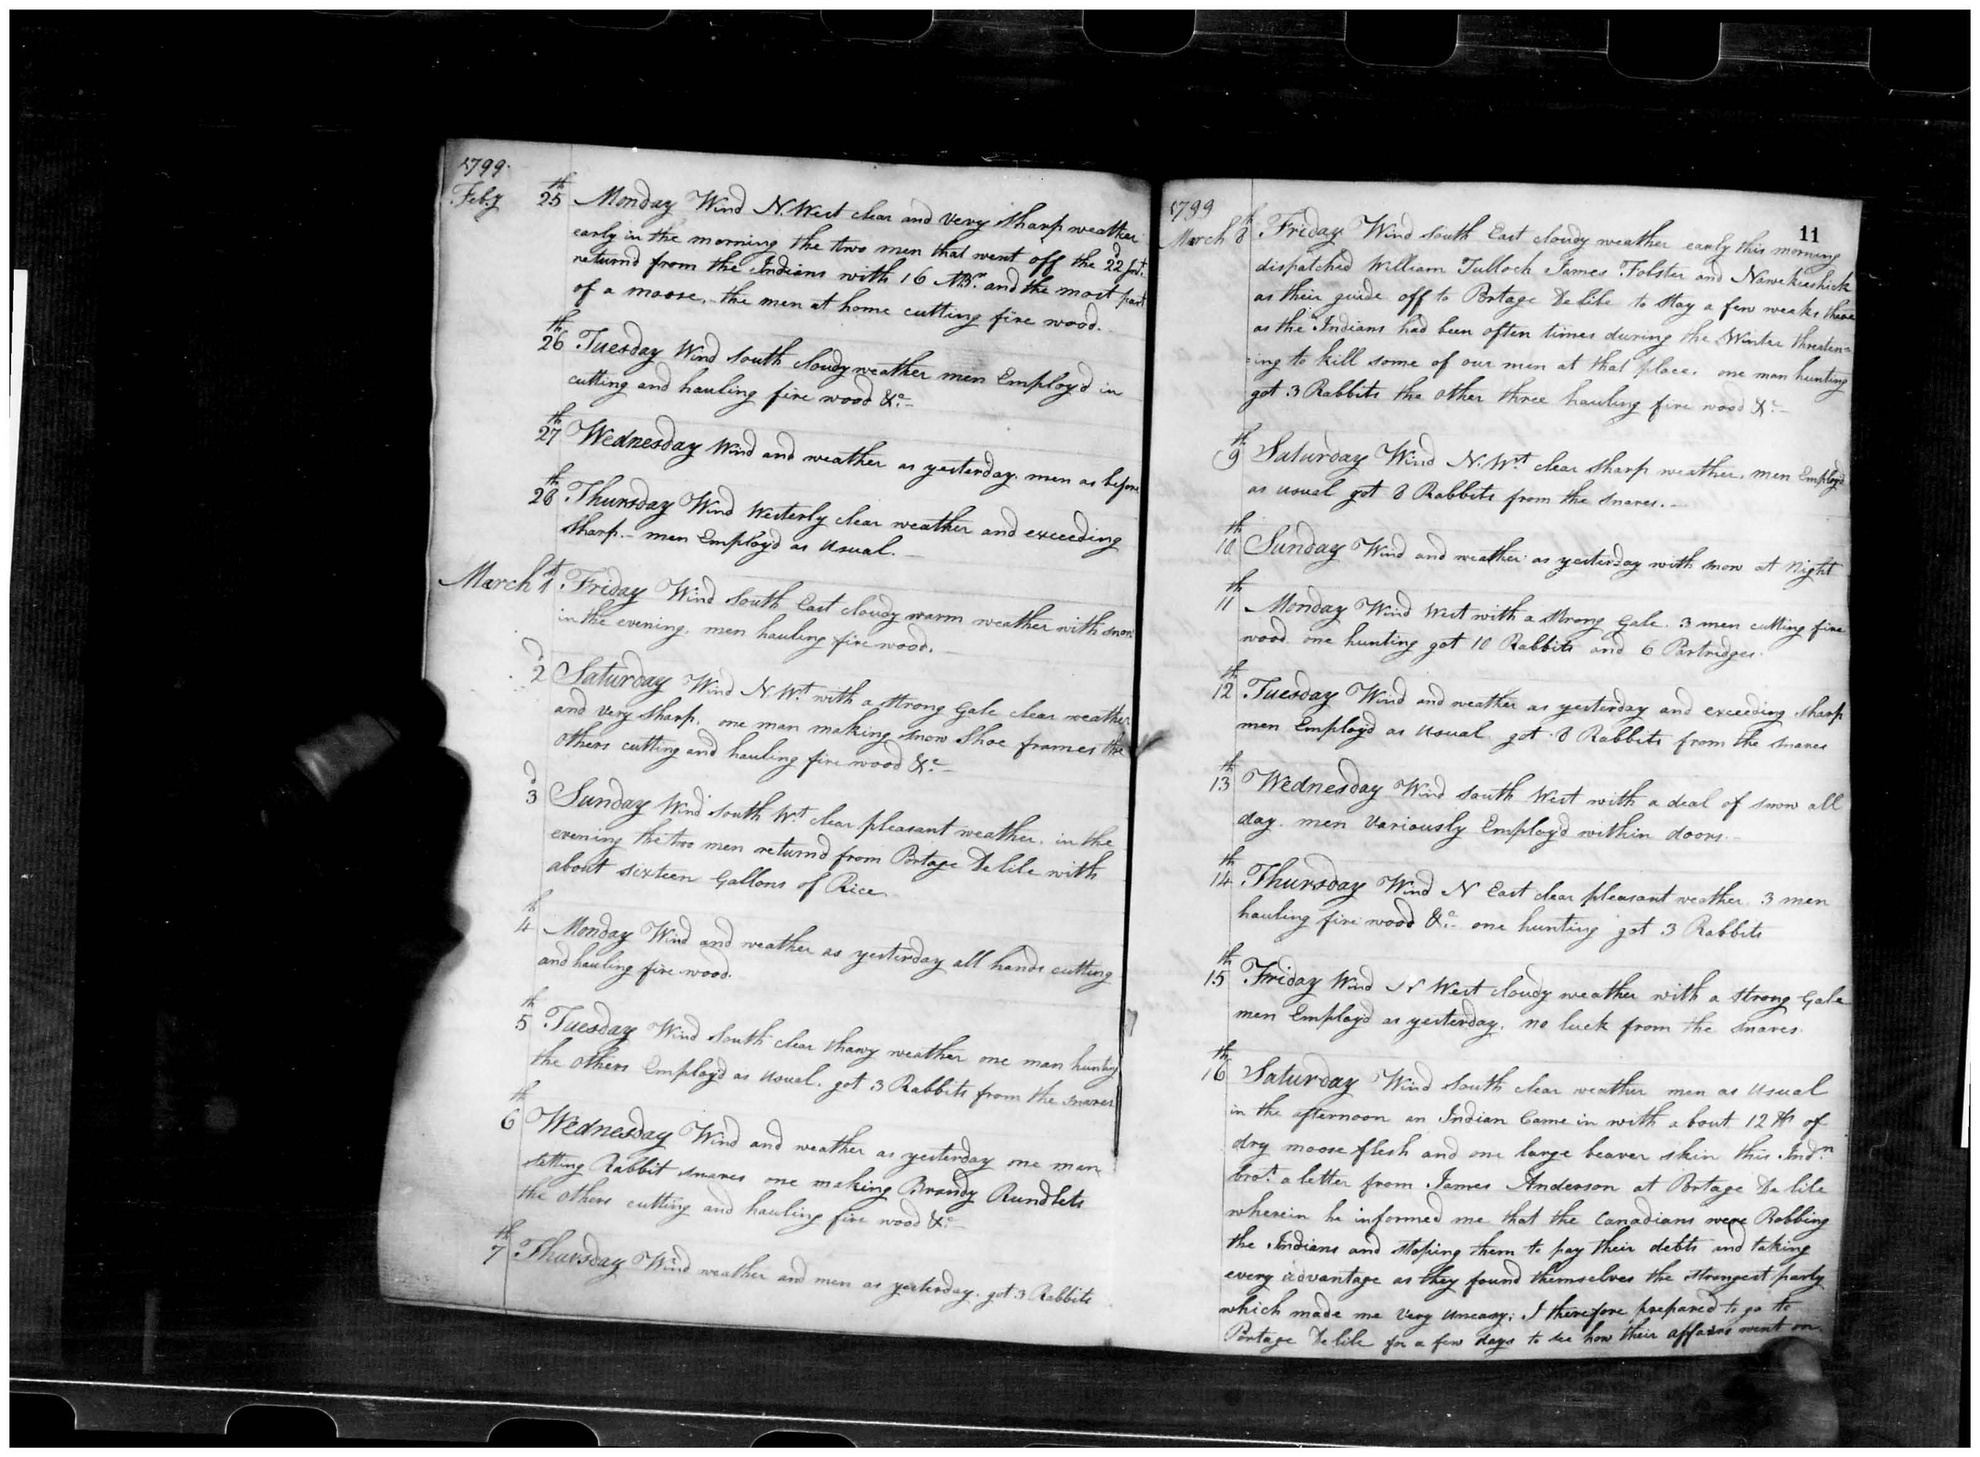 1799.
Feby 25th Monday Wind N. West clear and very sharp weather
early in the morning the two men that went off the 22d Inst.
returnd from the Indians with 16 MBr. and the most part
of a moose, the men at home cutting fire wood.
26th Tuesday Wind South cloudy weather men Employd in
cutting and hauling fire wood &c.-
27th Wednesday Wind and weather as yesterday. men as before
28th Thursday Wind Westerly clear weather and exceeding
sharp.- men Employd as Usual.-
March 1st Friday Wind South East cloudy warm weather with snow
in the evening, men hauling fire wood.
2d Saturday Wind N. Wt with a strong Gale clear weather
and very sharp. one man making snow Shoe frames the
others cutting and hauling fire wood &c.-
3d Sunday Wind South Wt clear pleasant weather. in the
evening the two men returnd from Portage De lile with
about sixteen Gallons of Rice
4th Monday Wind and weather as yesterday all hands cutting
and hauling fire wood.
5th Tuesday Wind South clear thawy weather one man hunting
the others Employd as Usual. got 3 Rabbits from the snares
6th Wednesday Wind and weather as yesterday one man
setting Rabbit snares one making Brandy Rundlets
the others cutting and hauling fire wood &c.-
7th Thursday Wind weather and men as yesterday. got 3 Rabbits
11
1799
March 8th Friday Wind South East cloudy weather early this morning
dispatched William Tulloch James Folster and Nawekeeshick
as their guide off to Portage De lile to stay a few weeks there
as the Indians had been often times during the Winter threaten=
=ing to kill some of our men at that place. one man hunting
got 3 Rabbits the other three hauling fire wood &c.-
9th Saturday Wind N. Wst clear sharp weather. men Employd
as usual got 8 Rabbits from the snares.-
10th Sunday Wind and weather as yesterday with snow at Night
11th Monday Wind West with a strong Gale. 3 men cutting fire
wood one hunting got 10 Rabbits and 6 Partridges.
12th Tuesday Wind and weather as yesterday and exceeding sharp
men Employd as Usual. got 8 Rabbits from the snares
13th Wednesday Wind South West with a deal of snow all
day. men Variously Employd within doors.-
14th Thursday Wind N East clear pleasant weather. 3 men
hauling fire wood &c.- one hunting got 3 Rabbits
15th Friday Wind N West cloudy weather with a strong Gale
men Employd as yesterday. no luck from the snares.
16th Saturday Wind South clear weather men as Usual
in the afternoon an Indian Came in with about 12 lb of
dry moose flesh and one large beaver skin this Indn
brot. a letter from James Anderson at Portage De lile
wherein he informed me that the Canadians were Robbing
the Indians and stoping them to pay their debts and taking
every advantage as they found themselves the strongest party
which made me Very Uneasy; I therefore prepared to go to
Portage De lile for a few days to see how their affairs went on.